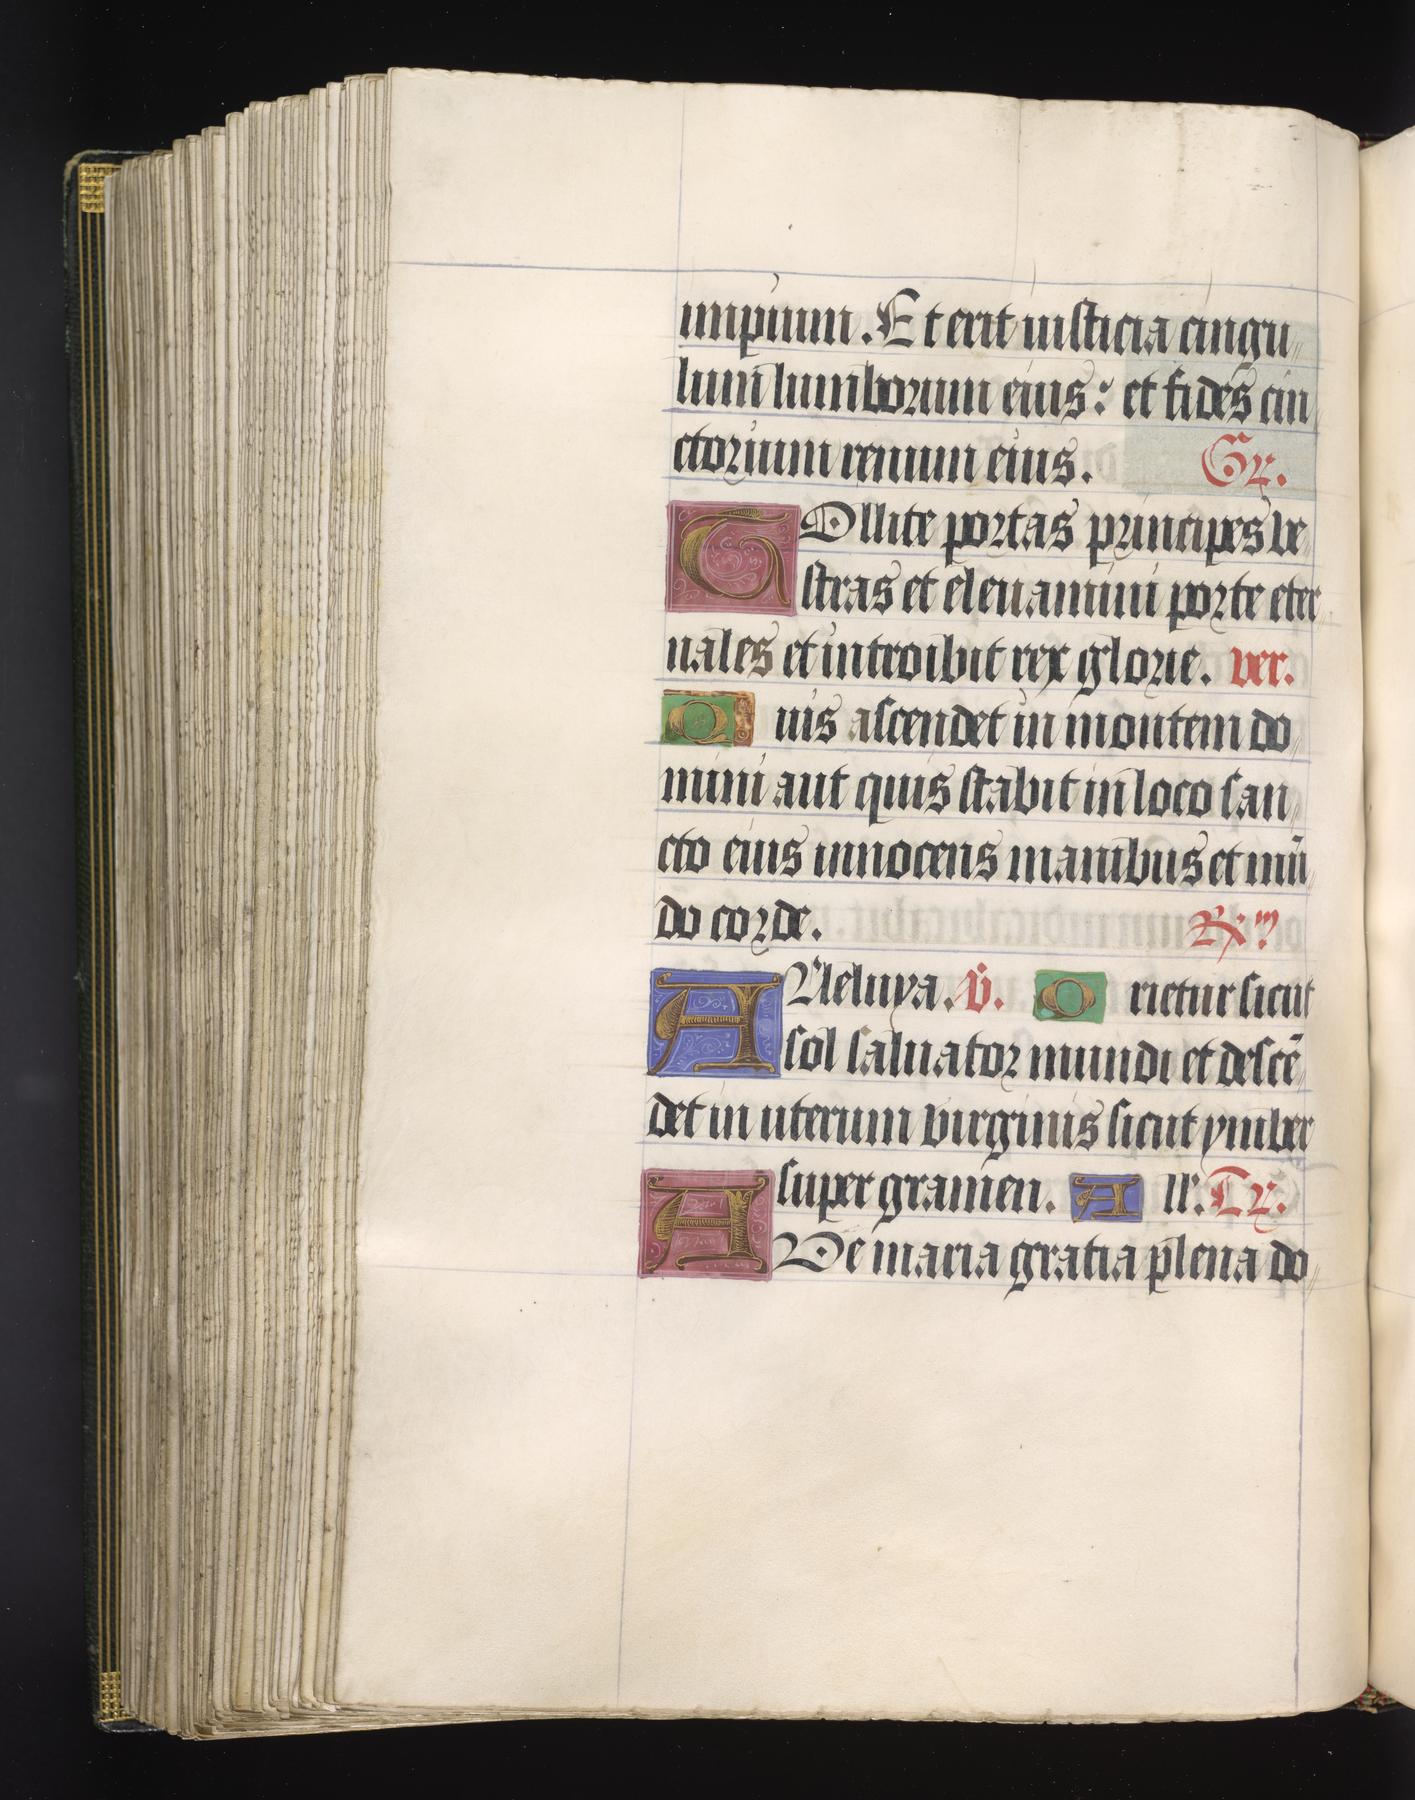 impium. Et erit iusticia cingu
lum lumborum eius: et fides cin
ctorium renum eius. Gr.
TOllite portas principes ve
stras et eleuamini porte eter
nales et introibit rex glorie. ver.
Quis ascendet in montem do
mini aut quis stabit in loco san
cto eius innocens manibus et mū
do corde. Rm
Alleluya. v̄. Orietur sicut
sol saluator mundi et descē
det in uterum virginis sicut ymber
super gramen. All'. Tr.
AVe maria gratia plena do